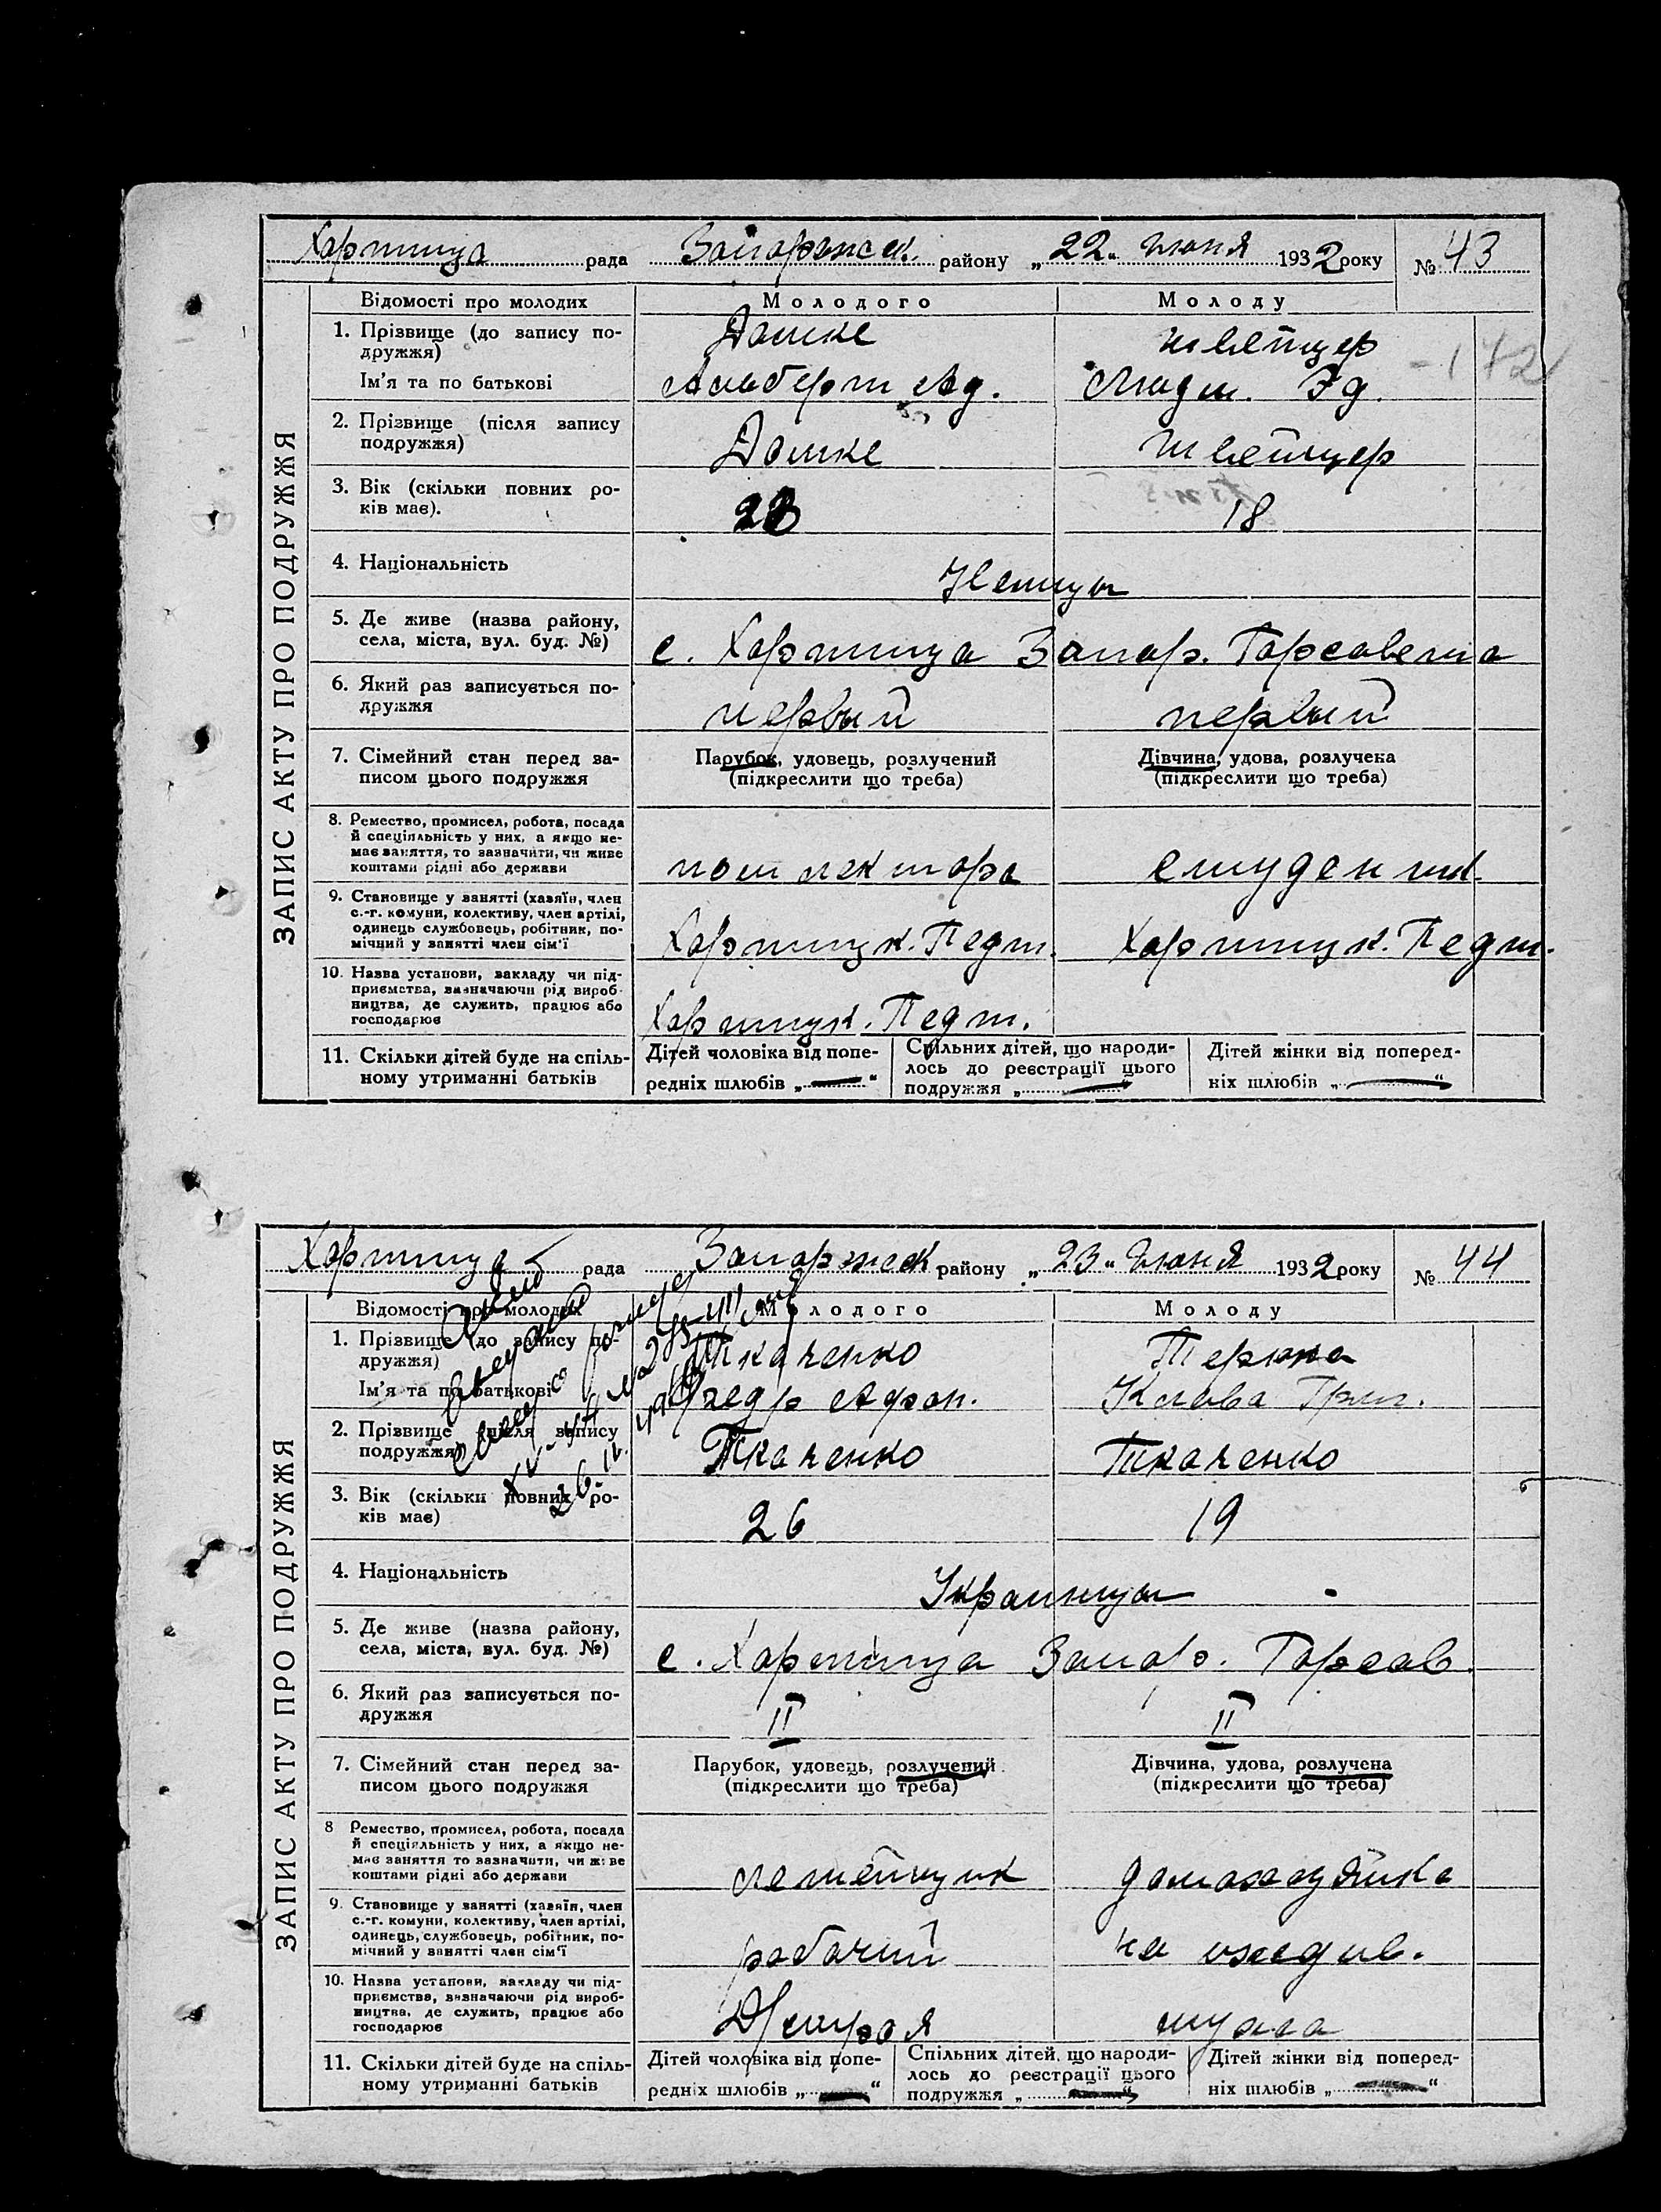 Хортица рада Запорожск. району „22" июня 1932 року № 43
ЗАПИС АКТУ ПРО ПОДРУЖЖЯ
Відомості про молодих Молодого Молоду
1. Прізвище (до запису по-
дружжя) Дамке Швейцер
Ім'я та по батькові Альберт Ад. Эд.
2. Прізвище (після запису
подружжя) Дамке Швейцер
3. Вік (скільки повних ро-
ків має). 23 18
4. Національність Немцы
5. Де живе (назва району,
села, міста, вул. буд. №) с. Хортица Запор. Горсовета
6. Який раз записується по-
дружжя первый первый
7. Сімейний стан перед за- Парубок, удовець, розлучений Дівчина, удова, розлучена
писом цього подружжя (підкреслити що треба) (підкреслити що треба)
8. Ремество, промисел, робота, посада
й спеціяльність у них, а якщо не-
має заняття, то зазначити, чи живе
коштами рідні або держави студентка
9. Становище у занятті (хазяїн, член
с.-г. комуни, колективу, член артілі,
одинець службовець, робітник, по-
мічний у занятті член сім'ї Хортицк. Педт. Хортицк. Педт.
10. Назва установи, закладу чи під-
приємства, визначаючи рід вироб-
ництва, де служить, працює або
господарює Хортицк. Педт.
11. Скільки дітей буде на спіль- Дітей чоловіка від попе- Спільних дітей, що народи- Дітей жінки від поперед-
ному утриманні батьків редніх шлюбів „—" лось до реєстрації цього ніх шлюбів „—"
подружжя „—"
Хортица рада Запорожск району „23" июня 1932 року № 44
ЗАПИС АКТУ ПРО ПОДРУЖЖЯ
Відомості про молодих Молодого Молоду
1. Прізвище (до запису по-
дружжя) Ткаченко
Ім'я та по батькові Федр Афон. Клава Григ.
2. Прізвище (після запису
подружжя) Ткаченко Ткаченко
3. Вік (скільки повних ро-
ків має) 26 19
4. Національність Украинцы
5. Де живе (назва району,
села, міста, вул. буд. №) с. Хортица Запор. Горсов.
6. Який раз записується по-
дружжя II II
7. Сімейний стан перед за- Парубок, удовець, розлучений Дівчина, удова, розлучена
писом цього подружжя (підкреслити що треба) (підкреслити що треба)
8 Ремество, промисел, робота, посада
й спеціяльність у них, а якщо не-
має заняття то зазначити, чи живе
коштами рідні або держави домохозяйка
9. Становище у занятті (хазяїн, член
с.-г. комуни, колективу, член артілі,
одинець, службовець, робітник, по-
мічний у занятті член сім'ї рабочий на иждив.
10. Назва установи, закладу чи під-
приємства, визначаючи рід вироб-
ництва, де служить, працює або
господарює мужа
11. Скільки дітей буде на спіль- Дітей чоловіка від попе- Спільних дітей, що народи- Дітей жінки від поперед-
ному утриманні батьків редніх шлюбів „—" лось до реєстрації цього ніх шлюбів „—"
подружжя „—"